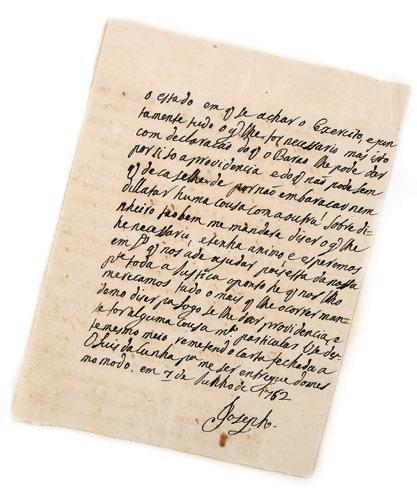 o estado em q̃ se achar o Exercito, e jun
tamente tudo o q̃ lhe for necessario mas isto
com declaracaõ do q̃ o Baraõ lhe pode dar
por isso a providencia e do q̃ naõ pode sem
q̃ de ca se lhe de por naõ embaracar nem
dilatar huma cousa com a outra! Sobre di
nheiro taobem me mandara diser o q̃ lhe
he necessario, e tenha animo e esperemos
em Ds q̃ nos a de ajudar pois esta da nossa
pte toda a Justica o ponto he q̃ nos lho
merecamos tudo o mais q̃ lhe ocorrer man
demo diser pa logo se lhe dar providencia, e
se for alguma cousa mto particular use des
te mesmo meio remetendo a carta fechada a
D Luis da Cunha pa me ser entregue do mes
mo modo. em 7 de Junho de 1762
Joseph